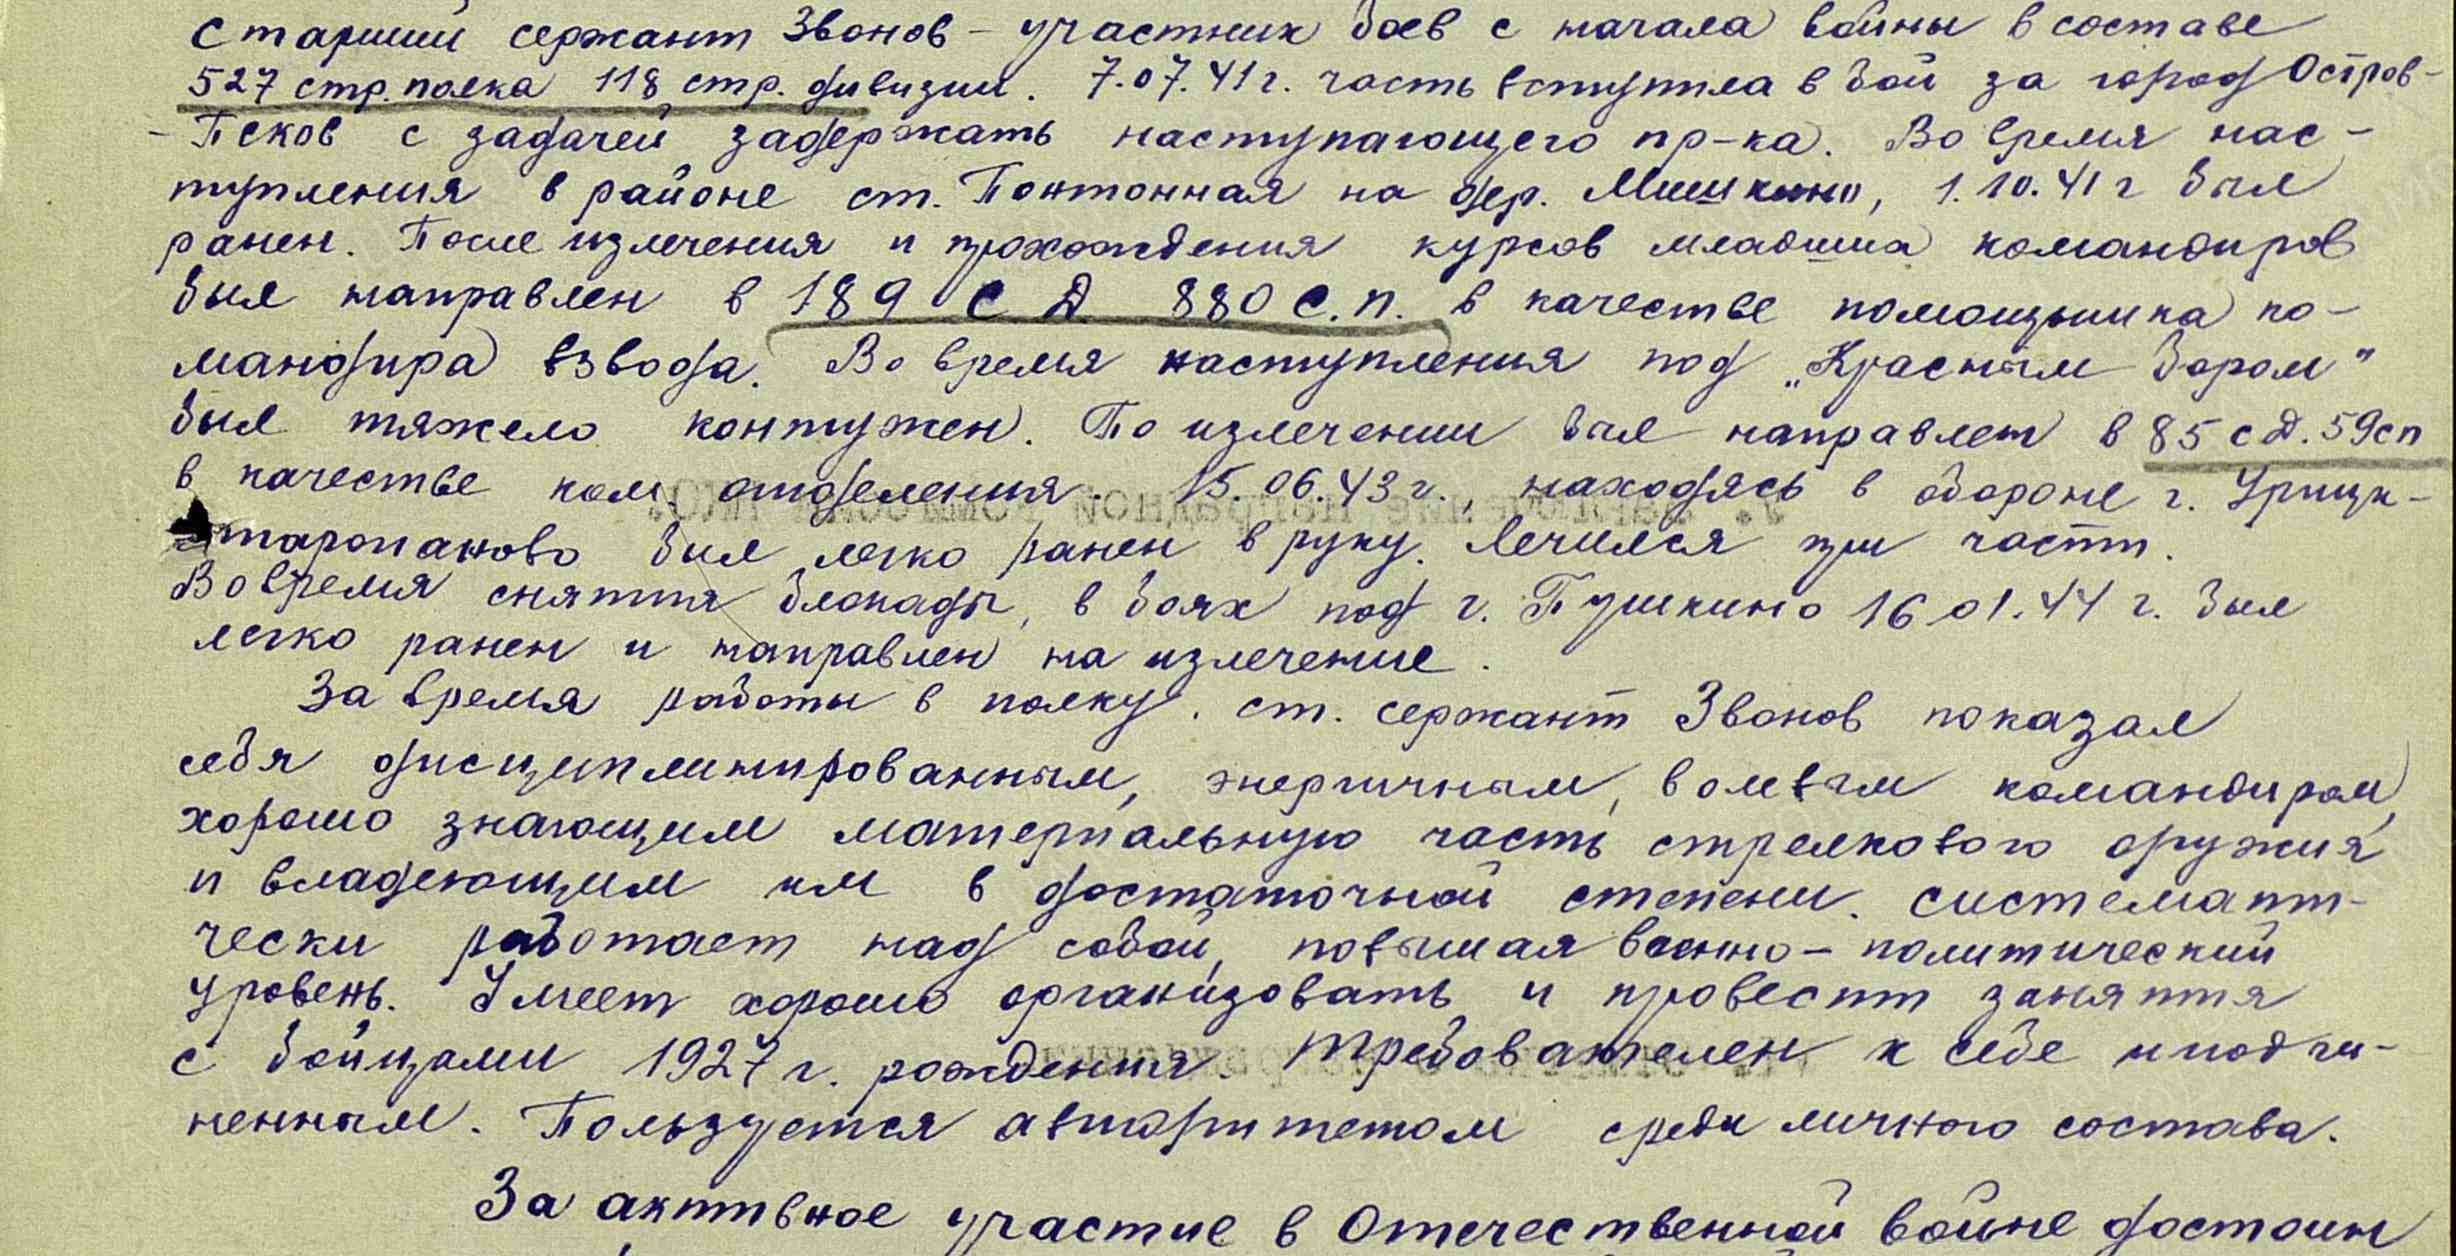 Старший сержант Звонов – участник боев с начала войны в составе
527 стр. полка 118 стр. дивизии. 7.07.41 г. часть вступила в бой за город Остров-
- Псков с задачей задержать наступающего пр-ка. Во время нас-
тупления в районе ст. Понтонная на дер. Мишкино, 1.10.41 г был
ранен. После излечения и прохождения курсов младших командиров
был направлен в 189 СД 880 С.П. в качестве помощника ко-
мандира взвода. Во время наступления под „Красным бором"
был тяжело контужен. По излечении был направлен в 85 сд. 59сп
в качестве ком отделения. 15.06.43 г., находясь в обороне г. Урицк-
старопаново был легко ранен в руку. Лечился при части.
Во время снятия блокады, в боях под г. Пушкино 16.01.44 г. был
легко ранен и направлен на излечение.
За время работы в полку. ст. сержант Звонов показал
себя дисциплинированным, энергичным, волевым командиром,
хорошо знающим материальную часть стрелкового оружия
и владеющим им в достаточной степени. системати-
чески работает над собой, повышая военно – политический
уровень. Умеет хорошо организовать и провести занятия
с бойцами 1927 г. рождения. Требователен к себе и подчи-
ненным. Пользуется авторитетом среди личного состава.
За активное участие в Отечественной войне достоин